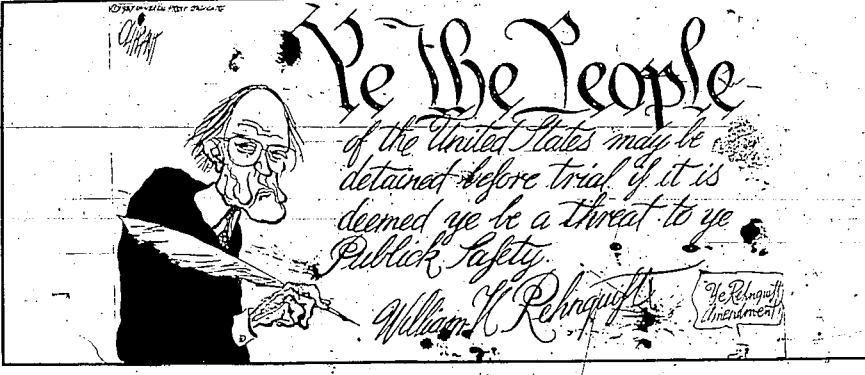 ©1987 UNIVERSAL PRESS SYNDICATE
OLIPHANT
Ye the People
of the United States may be
detained before trial if it is
deemed ye be a threat to ye
Publick Safety.
William H Rehnquist
Ye Rehnquist
Amendment